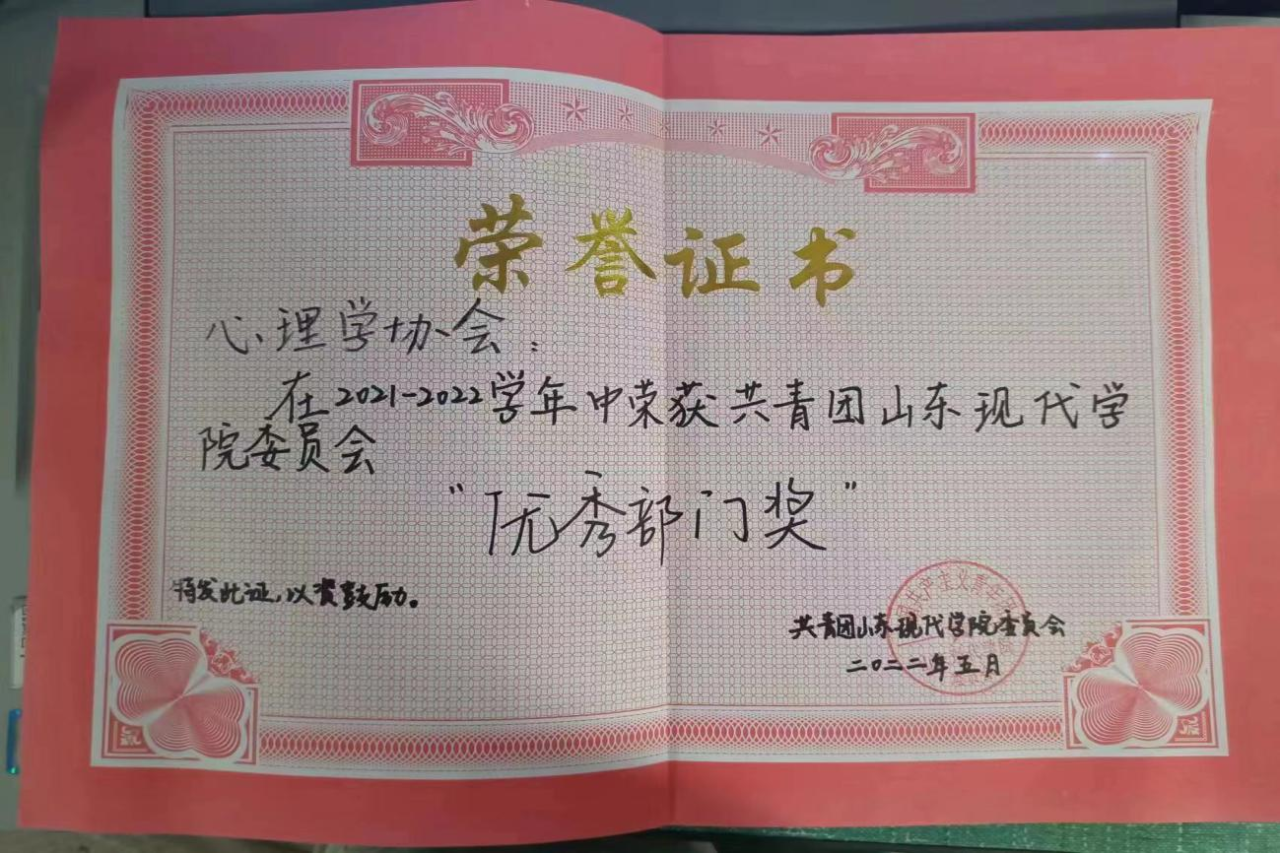 荣誉证书
心理学协会：
在2021-2022学年中荣获共青团山东现代学
院委员会
“优秀部门奖”
特发此证，以资鼓励。
共青团山东现代学院委员会
二〇二二年五月